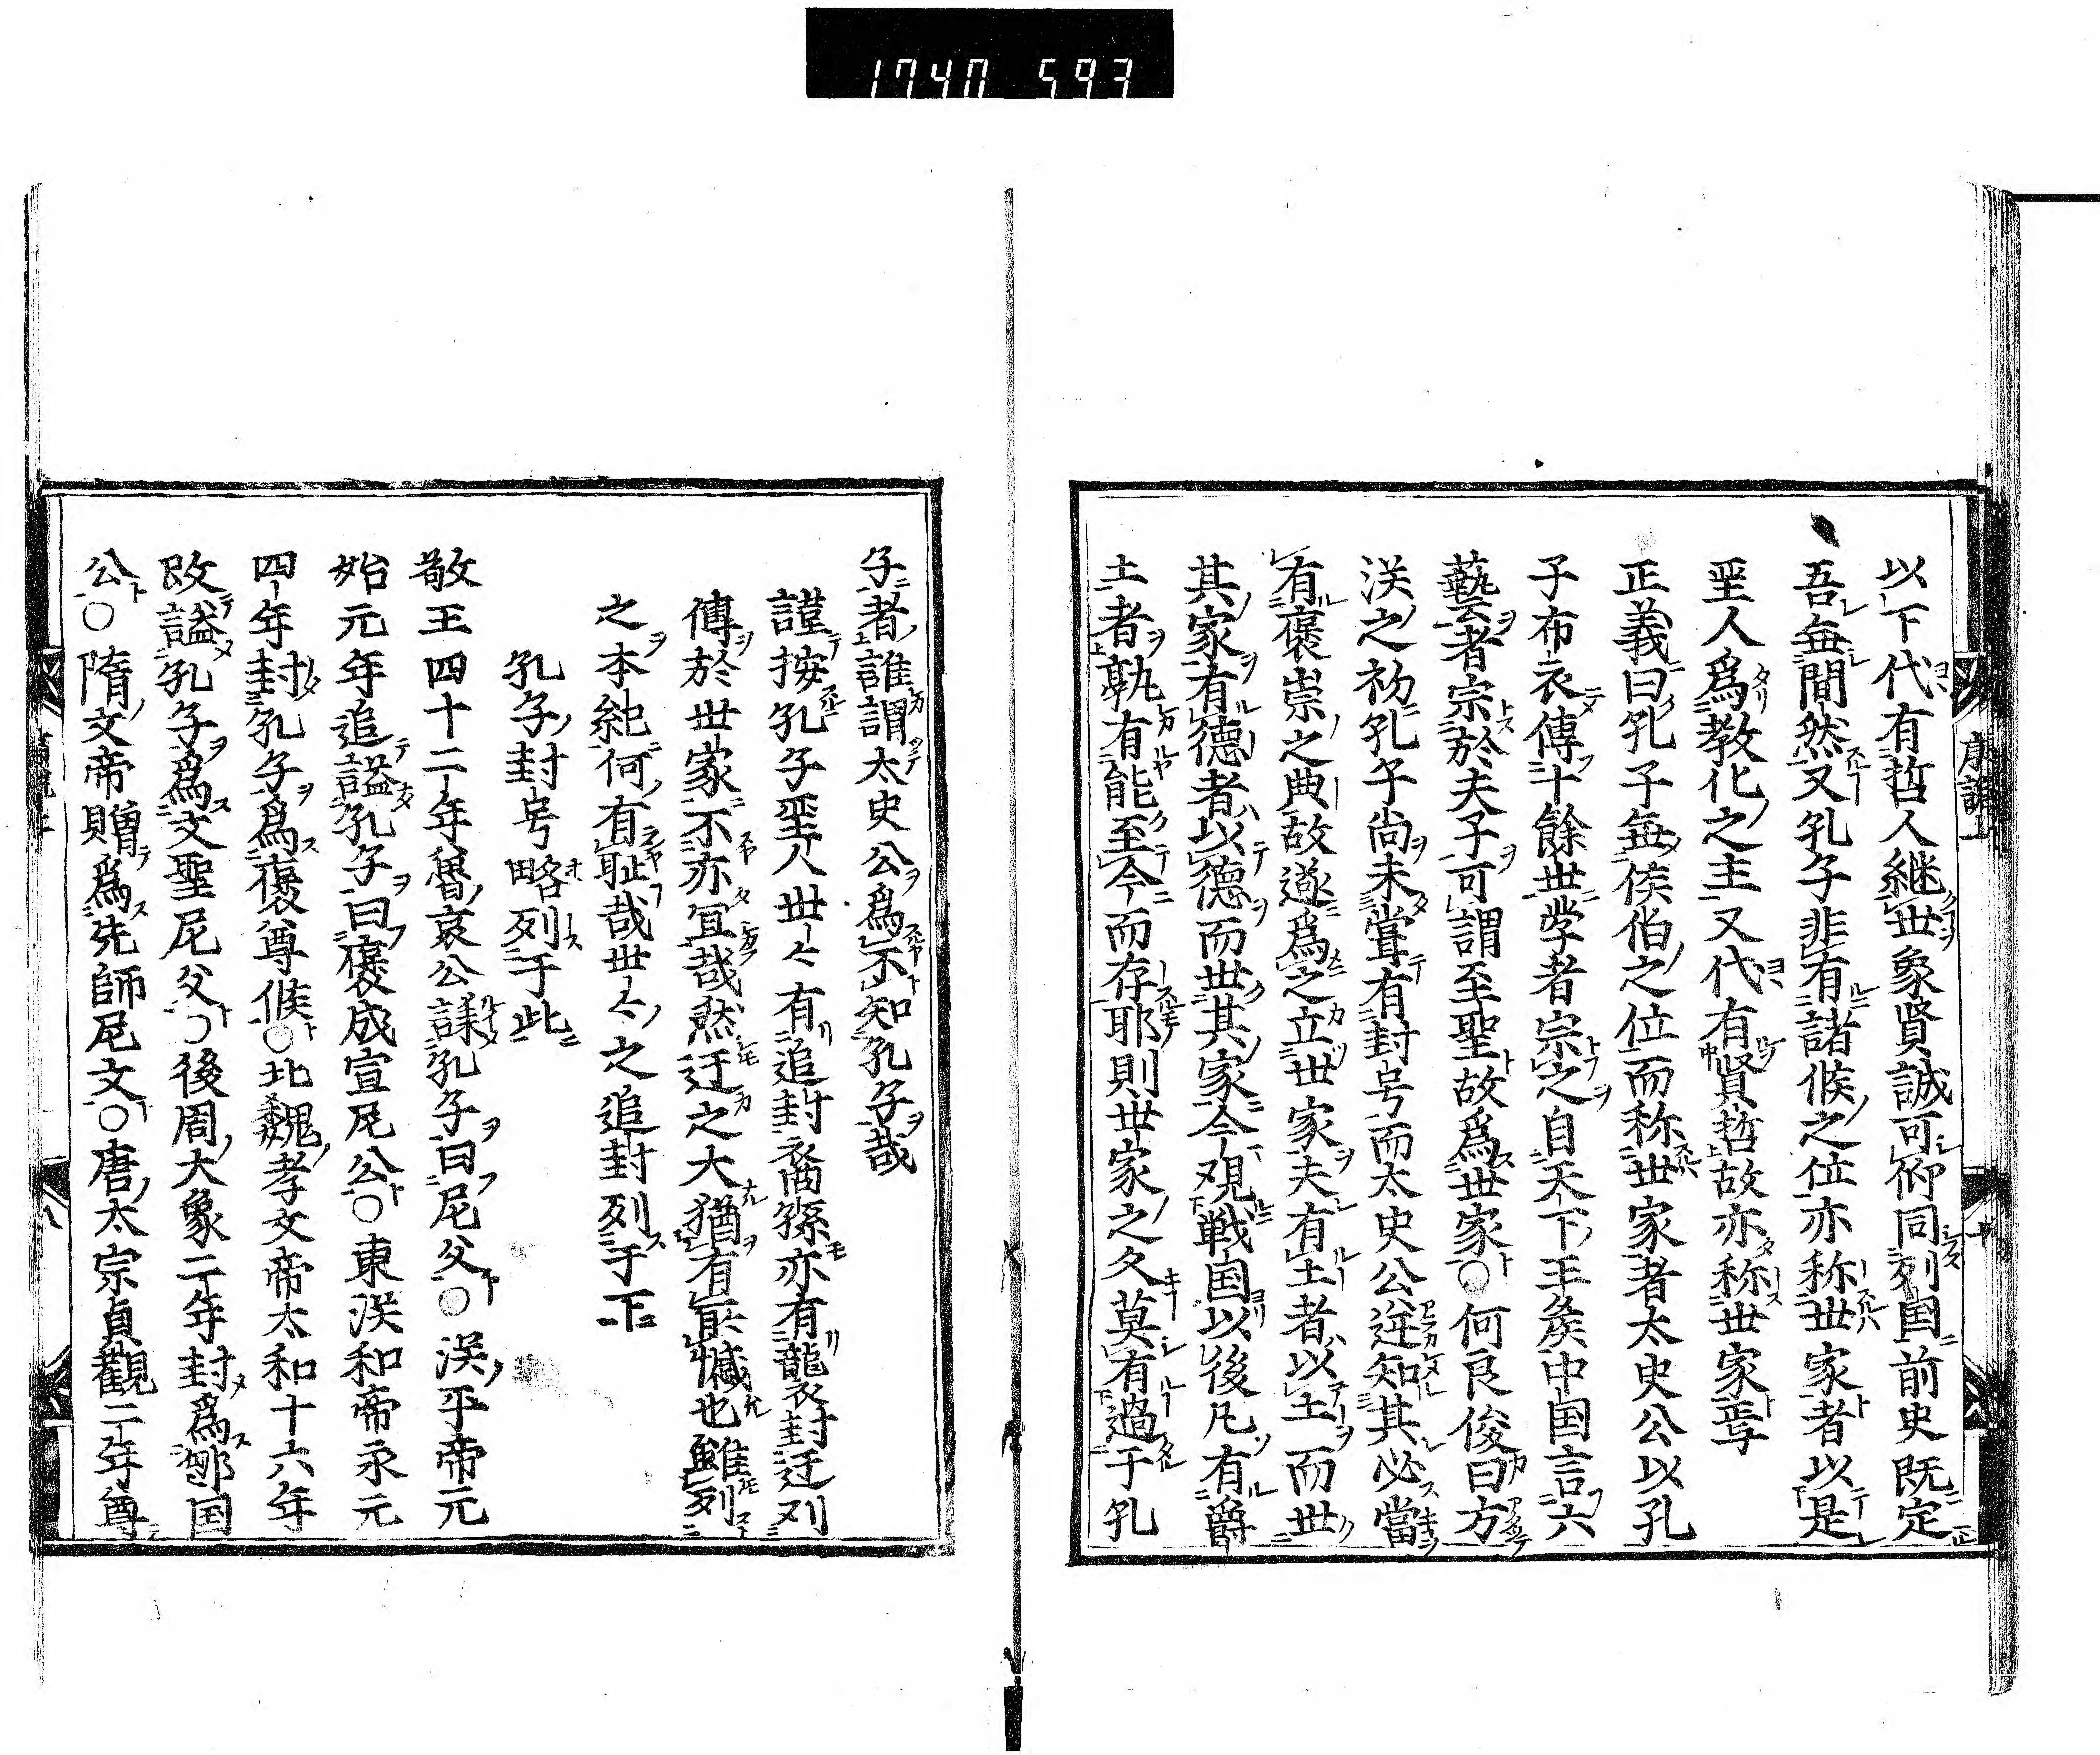 1740 593
以下代有哲人継世象賢誠可仰同列国前史既定
吾無間然又孔子非有諸侯之位亦称世家者以是
聖人爲教化之主又代有賢哲故亦称世家焉
正義曰孔子無侯伯之位而称世家者太史公以孔
子布衣傳十餘世学者宗之自天下王矦中国言六
藝者宗於夫子可謂至聖故爲世家○何良俊曰方
漢之初孔子尚未甞有封号而太史公逆知其必當
有褒崇之典故遂爲之立世家夫有土者以土而世
其家有德者以德而世其家今観戦国以後凡有爵
土者孰有能至今而存耶則世家之久莫有過于孔
子者誰謂太史公爲不知孔子哉
謹按孔子聖人世々有追封裔孫亦有襲衣封迁列
傳於世家不亦冝哉然迁之大猶有𠯁憾也雖列
之本紀何有耻哉世々之追封列于下
孔子封号略列于此
敬王四十二年魯哀公誄孔子曰尼父○漢平帝元
始元年追謚孔子曰褒成宣尼公○東漢和帝永元
四年封孔子爲褒尊侯○北魏孝文帝太和十六年
改謚孔子爲文聖尼父○後周大象二年封爲鄒国
公○隋文帝贈爲先師尼父○唐太宗貞觀二年尊